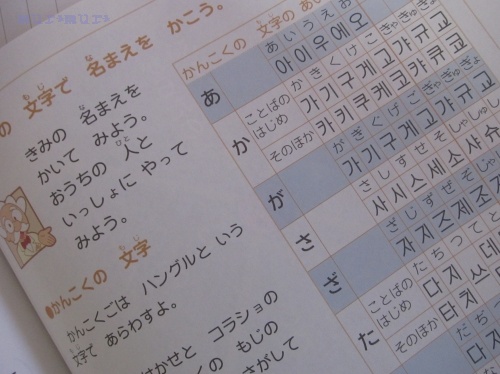 の 文字で 名まえを かこう。
きみの 名まえを
かいて みよう。
おうちの 人と
いっしょに やって
みよう。
●かんこくの 文字
かんこくごは ハングルと いう
文字で あらわすよ。
はかせと コラショの
くの もじの
さがして
かんこくの 文字の あい
あ
あいうえお
아이우에오
か
ことばのはじめ
かきくけこ
きゃきゅきょ
가기구게고
갸규교
そのほか
카키쿠케코
캬큐쿄
が
がぎぐげご
ぎゃぎゅぎょ
가기구게고
갸규교
さ
さしすせそ
しゃしゅ
사시스세소
샤슈
ざ
ざじずぜぞ
じゃ
자지즈제조
た
ことばのはじめ
たちつて
다지쓰데
そのほか
타치쓰
だぢ
다지